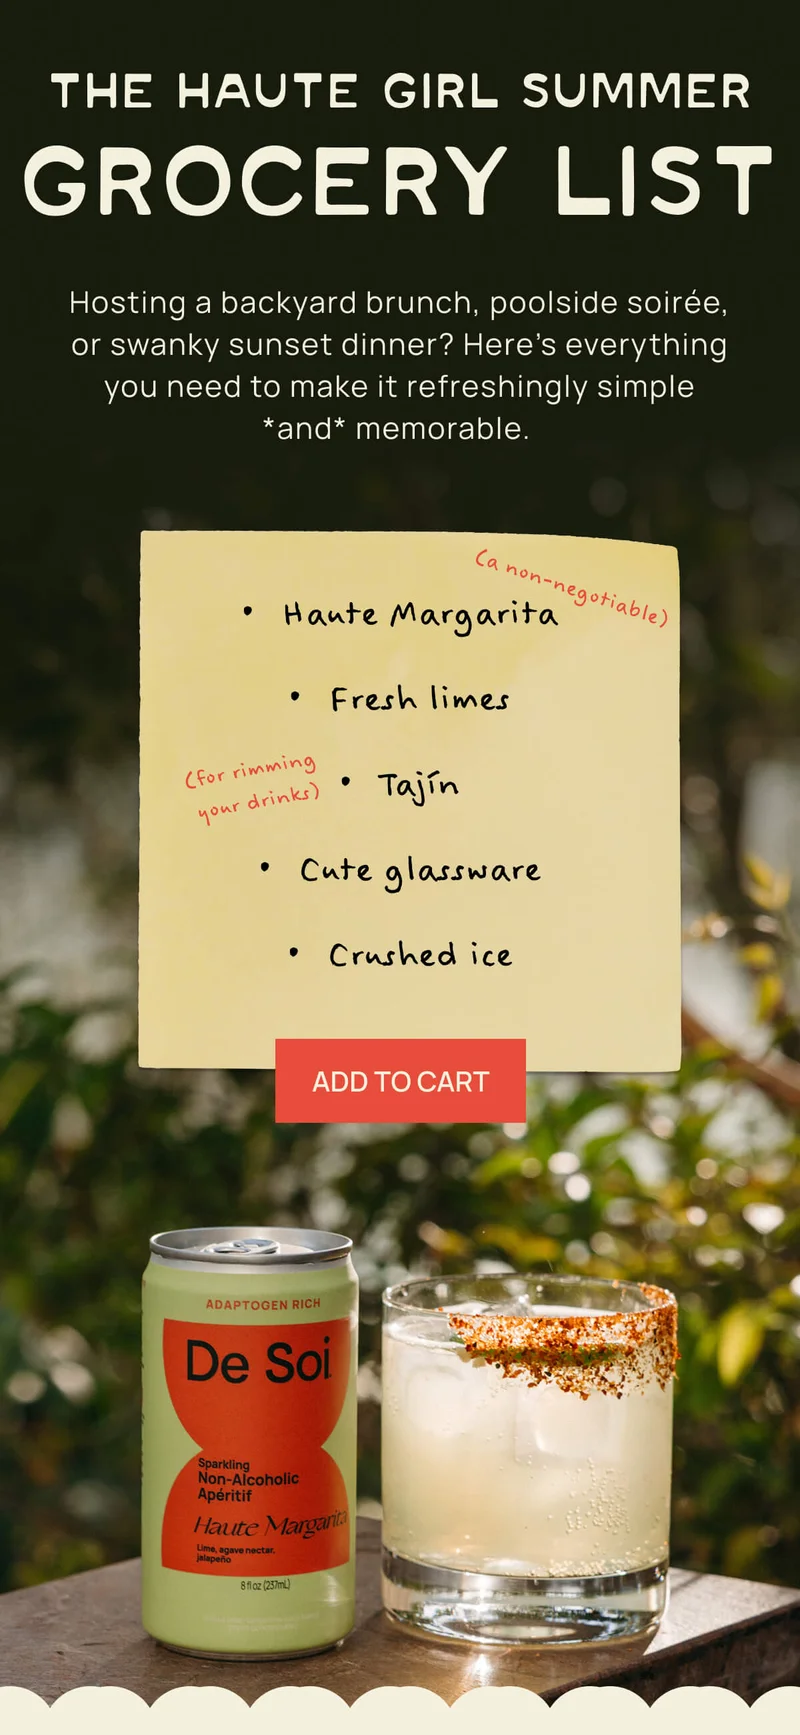 THE HAUTE GIRL SUMMER
GROCERY LIST
Hosting a backyard brunch, poolside soirée,
or swanky sunset dinner? Here’s everything
you need to make it refreshingly simple
*and* memorable.
(a non-negotiable)
• Haute Margarita
• Fresh limes
(for rimming
your drinks)
• Tajín
• Cute glassware
• Crushed ice
ADD TO CART
ADAPTOGEN RICH
De Soi
Sparkling
Non-Alcoholic
Apéritif
Haute Margarita
Lime, agave nectar,
jalapeño
8 fl oz (237mL)